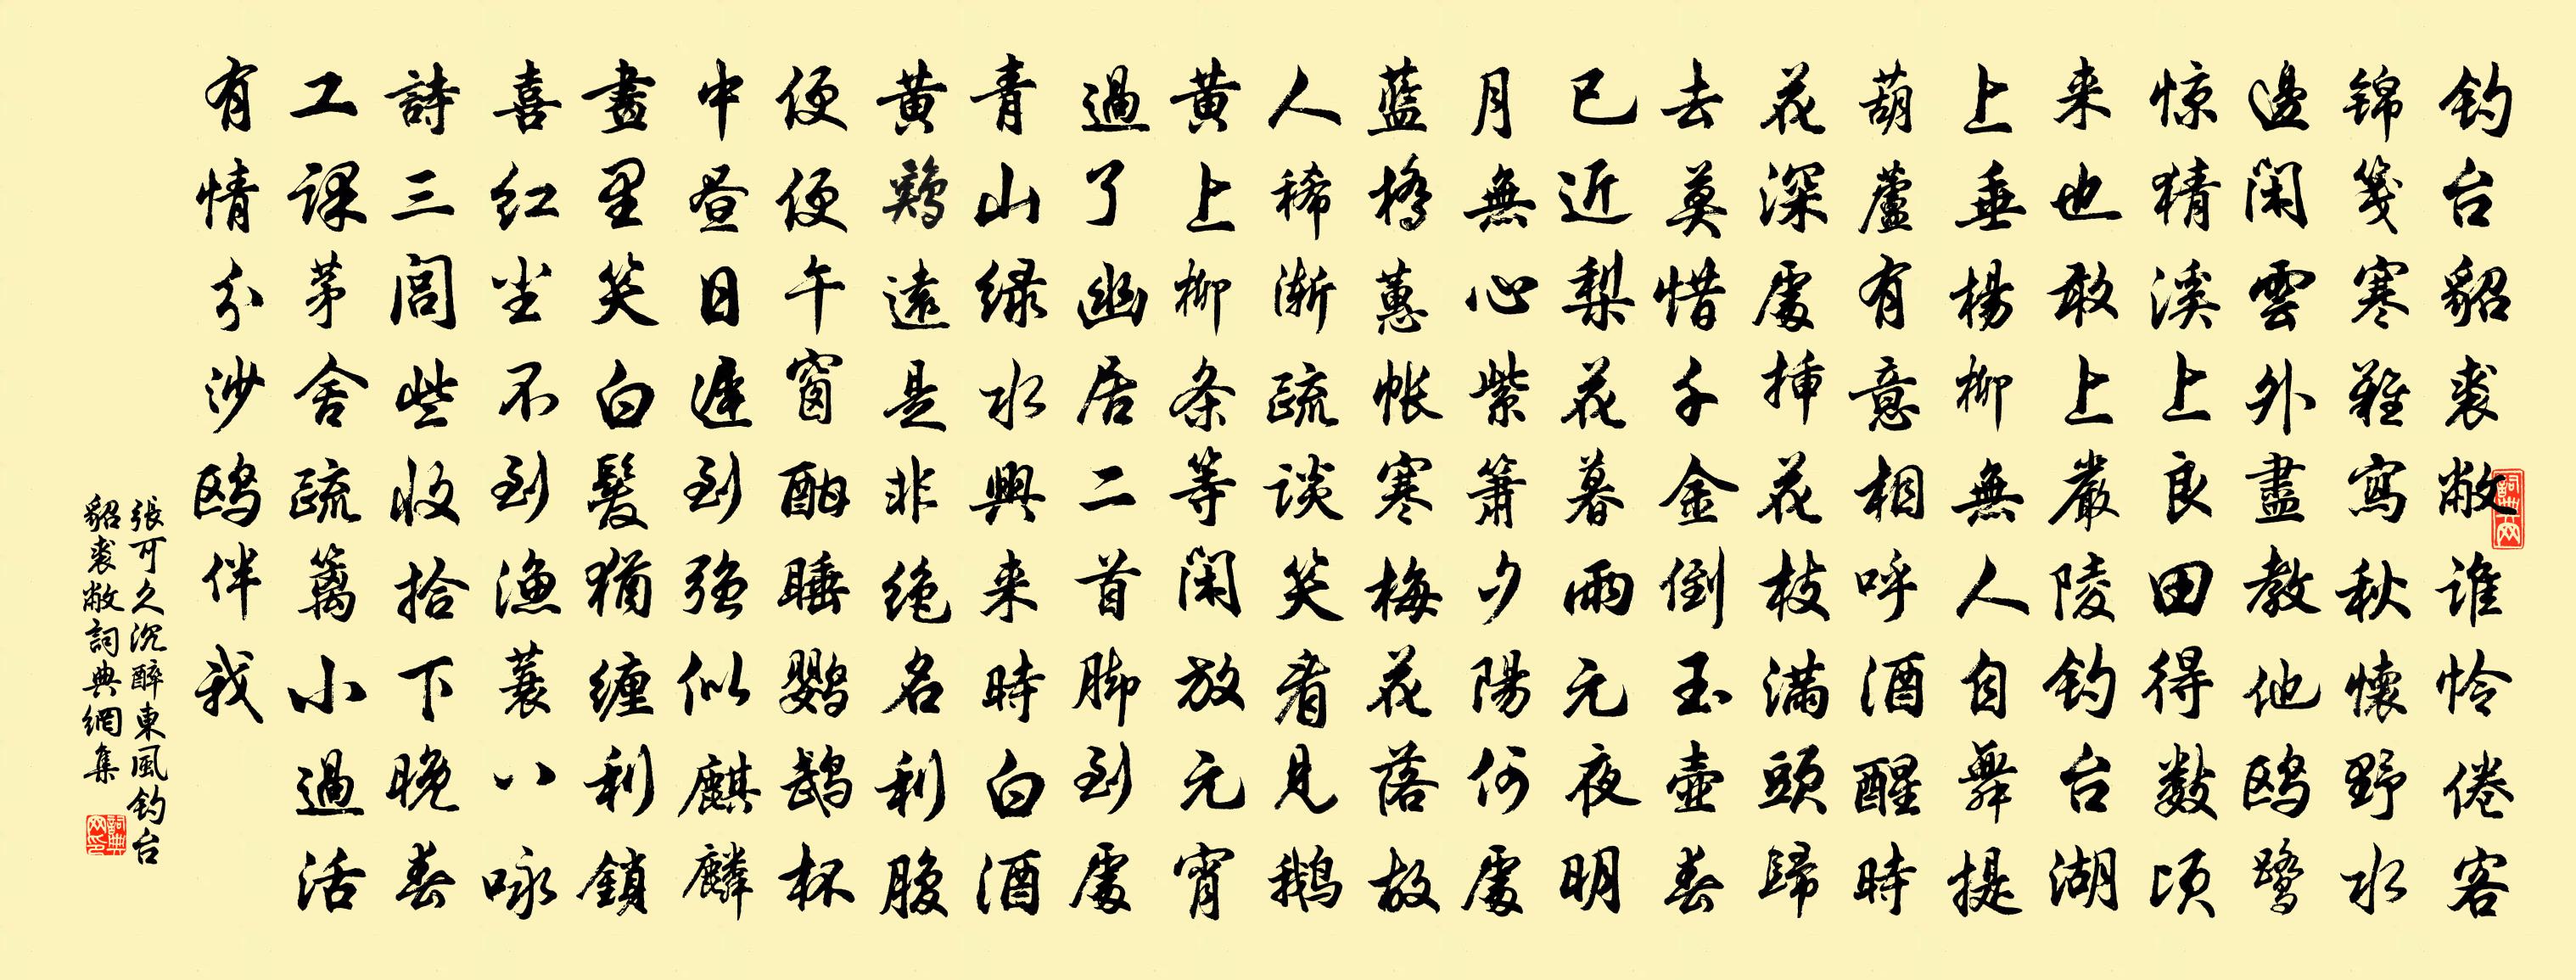 钓台貂裘敝谁怜倦客
锦笺寒难写秋怀野水
邊闲雲外盡教他鸥鹭
惊猜溪上良田得数顷
来也敢上嚴陵钓台湖
上垂楊柳無人自舞提
葫蘆有意相呼酒醒時
花深處插花枝满頭歸
去莫惜千金倒玉壶春
已近梨花暮雨元夜明
月無心紫箫夕陽何處
蓝橋蕙帐寒梅花落故
人稀渐疏谈笑看見鹅
黄上柳条等闲放元宵
過了幽居二首脚到處
青山绿水興来時白酒
黄鷄遠是非绝名利腹
便便午窗酣睡鹦鹉杯
中昼日遲到强似麒麟
畫里笑白髮猶缠利鎖
喜红尘不到渔蓑八咏
詩三闾些收拾下晚春
工課茅舍疏篱小過活
有情分沙鸥伴我
張可久沉醉東風钓台
貂裘敝詞典網集